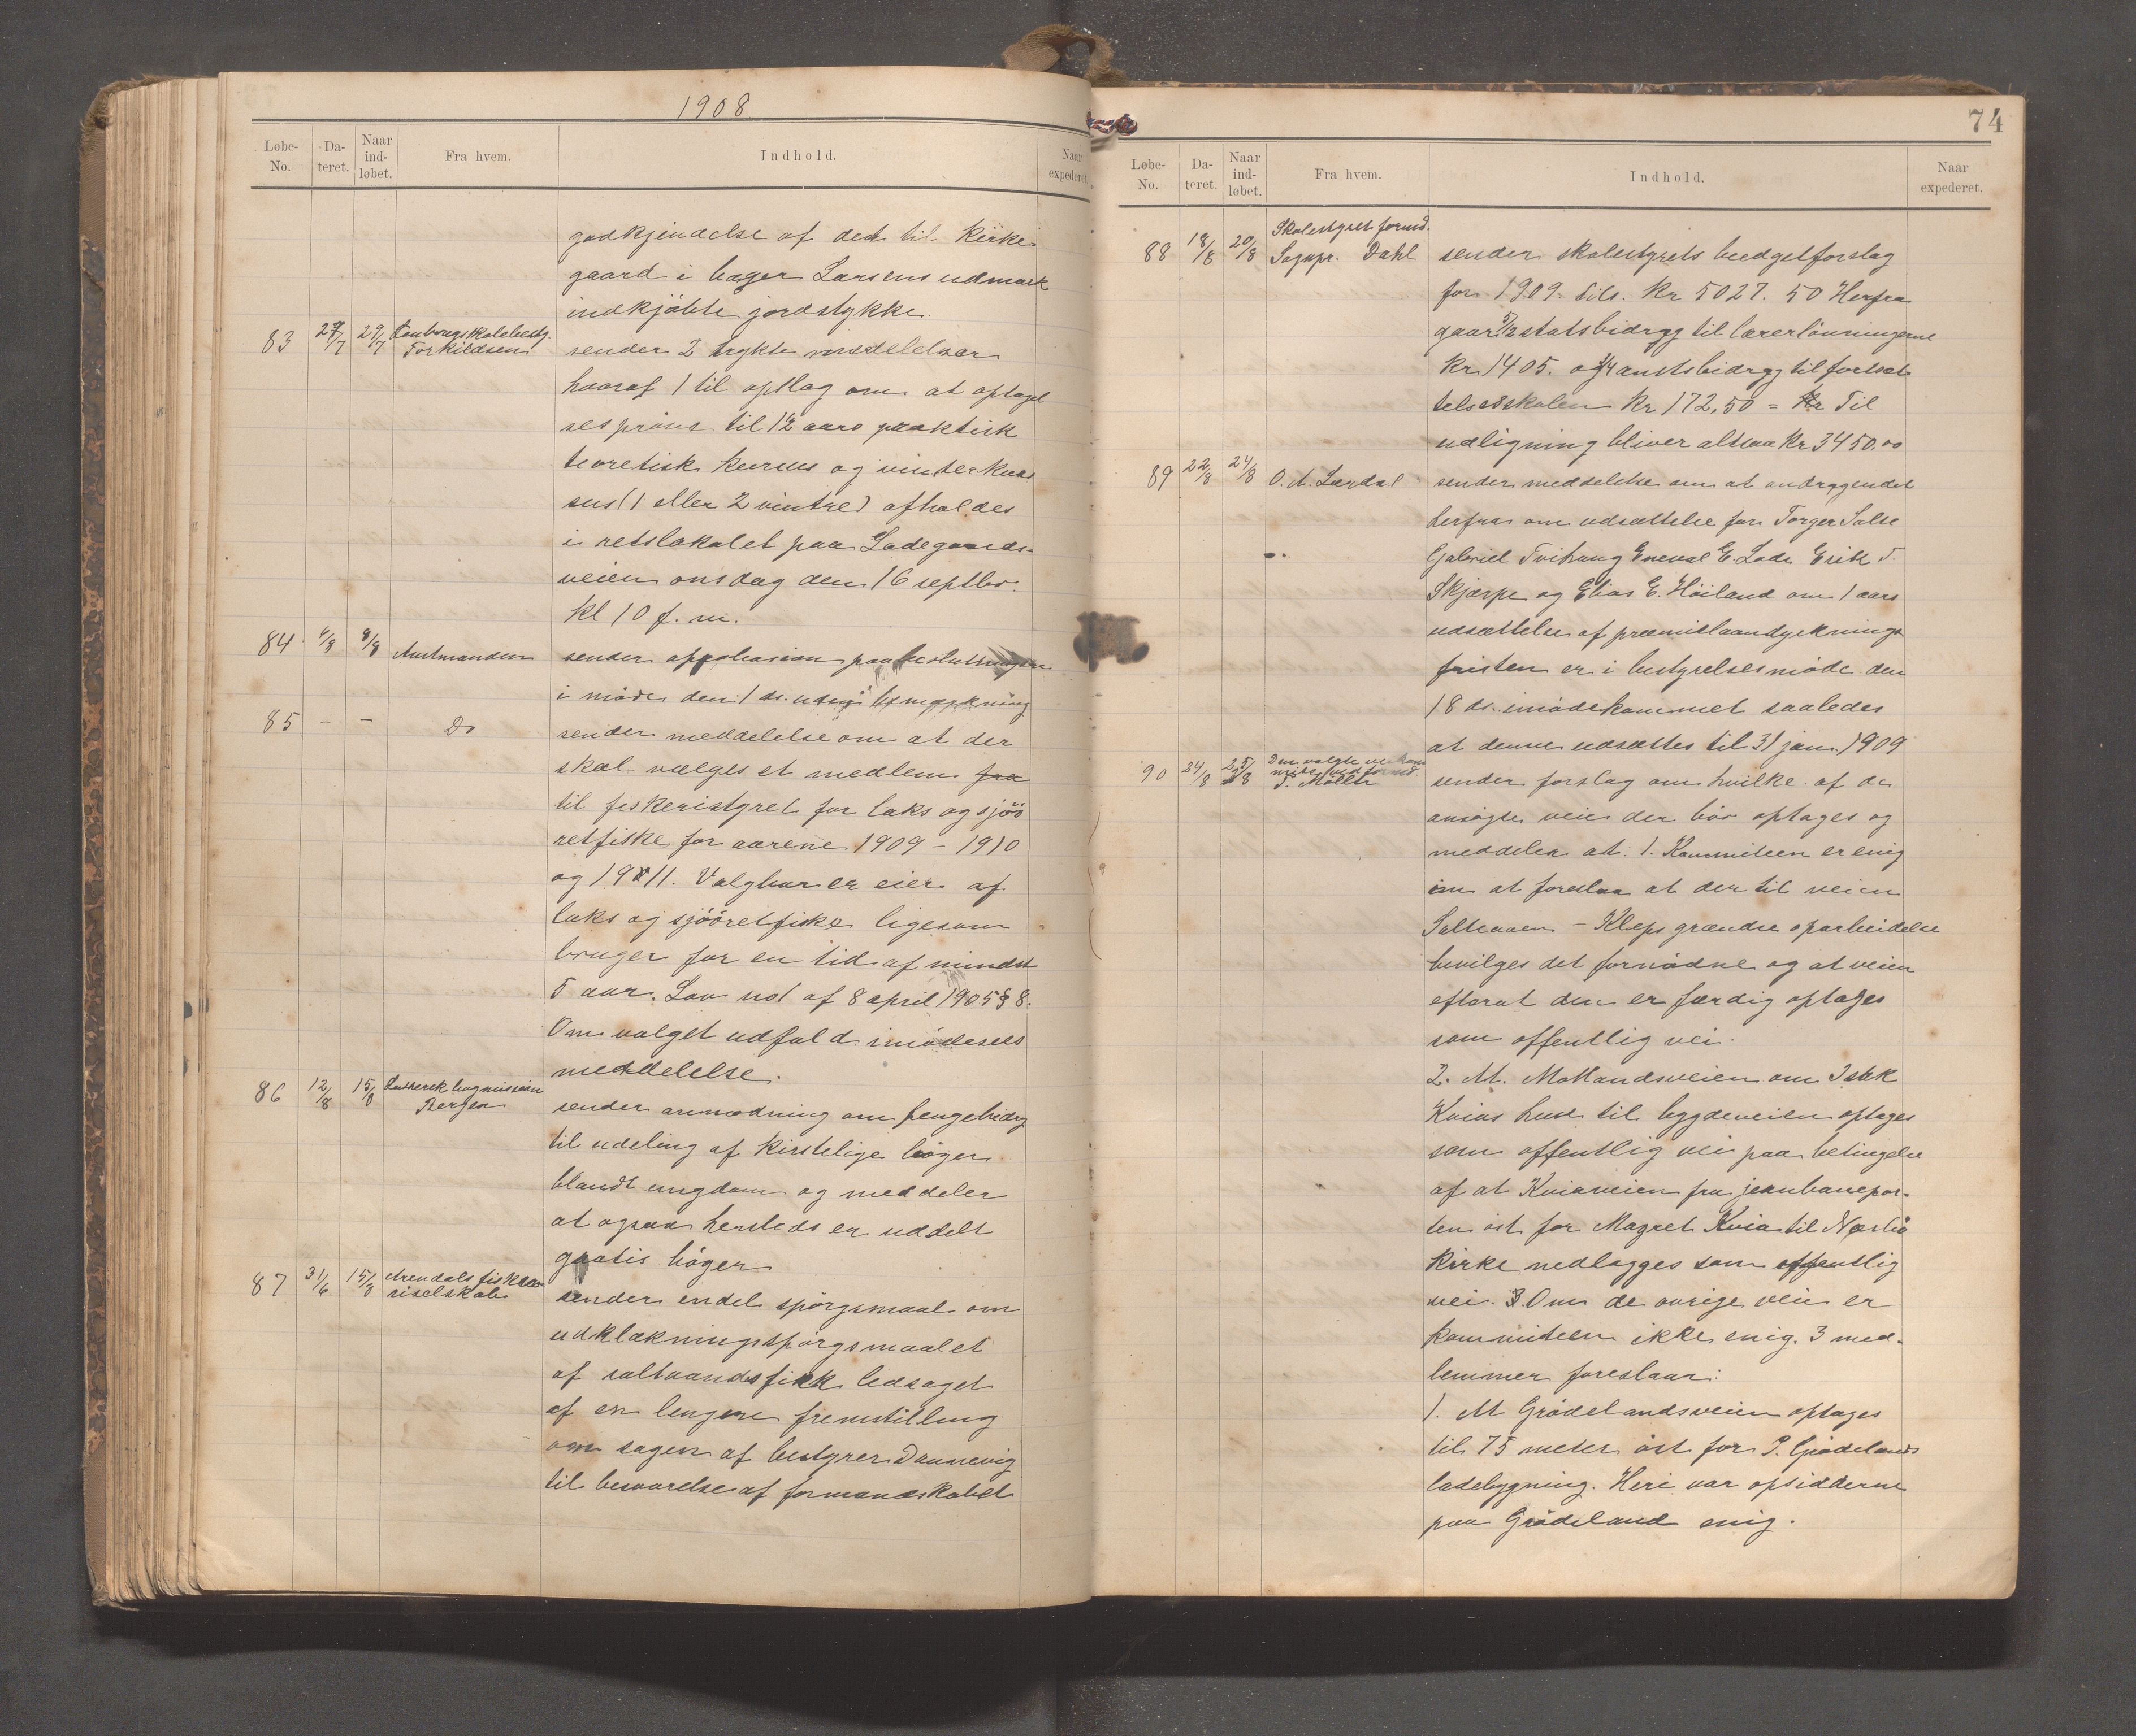 1908
Løbe-No. Dateret. Naar indløbet. Fra hvem. Indhold. Naar expederet.
godkjendelse af det til kirke
gaard i bager Larsens udmark
indkjøbte jordstykke.
83 27/7 29/7 Landbrugsskolebesty. Torkildsen sender 2 trykte meddelelser
hvoraf 1 til opslag om at optagel
sesprøve til 1½ aars praktisk
teoretisk kursus og vinterkur
sus (1 eller 2 vintre) afholdes
i retslokalet paa Ladegaards-
veien onsdag den 16 septbr.
kl 10 f. m.
84 4/8 8/8 Amtmanden sender approbasion paa beslutningene
i møde den 1 ds. uden bemærkning
85 — — Do sender meddelelse om at der
skal vælges et medlem fra
til fiskeristyret for laks og sjøø
retfiske for aarene 1909 – 1910
og 1911. Valgbar er eier af
laks og sjøøretfiske ligesom
bruger for en tid af mindst
5 aar. Lov no 1 af 8 april 1905 § 8.
Om valget udfald imødesees
meddelelse.
86 12/8 15/8 Luthersk bogmission Bergen sender anmodning om pengebidrg
til udeling af kirstelige bøger
blandt ungdom og meddeler
at ogsaa hersteds er uddelt
gratis bøger
87 31/6 15/8 Arendals fiskeriselskab sender endel spørgsmaal om
udklækningsspørgsmaalet
af saltvandsfisk ledsaget
af en længere fremstilling
om sagen af bestyrer Dannevig
til besvarelse af formandskabet
74
Løbe-No. Dateret. Naar indløbet. Fra hvem. Indhold. Naar expederet.
88 18/8 20/8 Skolestyret formd. Sognpr. Dahl sender skolestyrets budgetforslag
for 1909. Tils. Kr 5027.50 Herfra
gaar 5/12 statsbidrag til lærerlønningerne
Kr. 1405. og 3/4 amtsbidrag til fortsæt
telsesskolen Kr 172,50 = Kr Til
udligning bliver altsaa Kr 3450.00
89 22/8 24/8 O. A. Lærdal sender meddelelse om at andragendet
herfra om udsættelse for Torger Salte
Gabriel Tvihaug Eneval E. Lode Erik T.
Skjærpe og Elias E. Høiland om 1 aars
udsættelse af præmielaandyrknings
fristen er i bestyrelsesmøde den
18 ds. imødekommet saaledes
at denne udsættes til 31 jan. 1909
90 24/8 25/8 Den valgte veikomite ved formd. J. Motte sender forslag om hvilke af de
ansøgte veie der bør optages og
meddeler at: 1. Kommiteen er enig
om at foreslaa at der til veien
Salteaaen – Kleps grændse oparbeidelse
bevilges det fornødne og at veien
efterat den er færdig optages
som offentlig vei.
2. At Motlandsveien om Isak
Kvias hus til bygdeveien optages
som offentlig vei paa betingelse
af at Kviaveien fra jernbanepor-
ten øst for Magret Kvia til Nærbø
kirke nedlægges som offentlig
vei. 3. Om de øvrige veie er
kommiteen ikke enig. 3 med-
lemmer foreslaar:
1. At Grødelandsveien optages
til 75 meter øst for P. Grødelands
ladebygning. Heri var opsidderne
paa Grødeland enig.